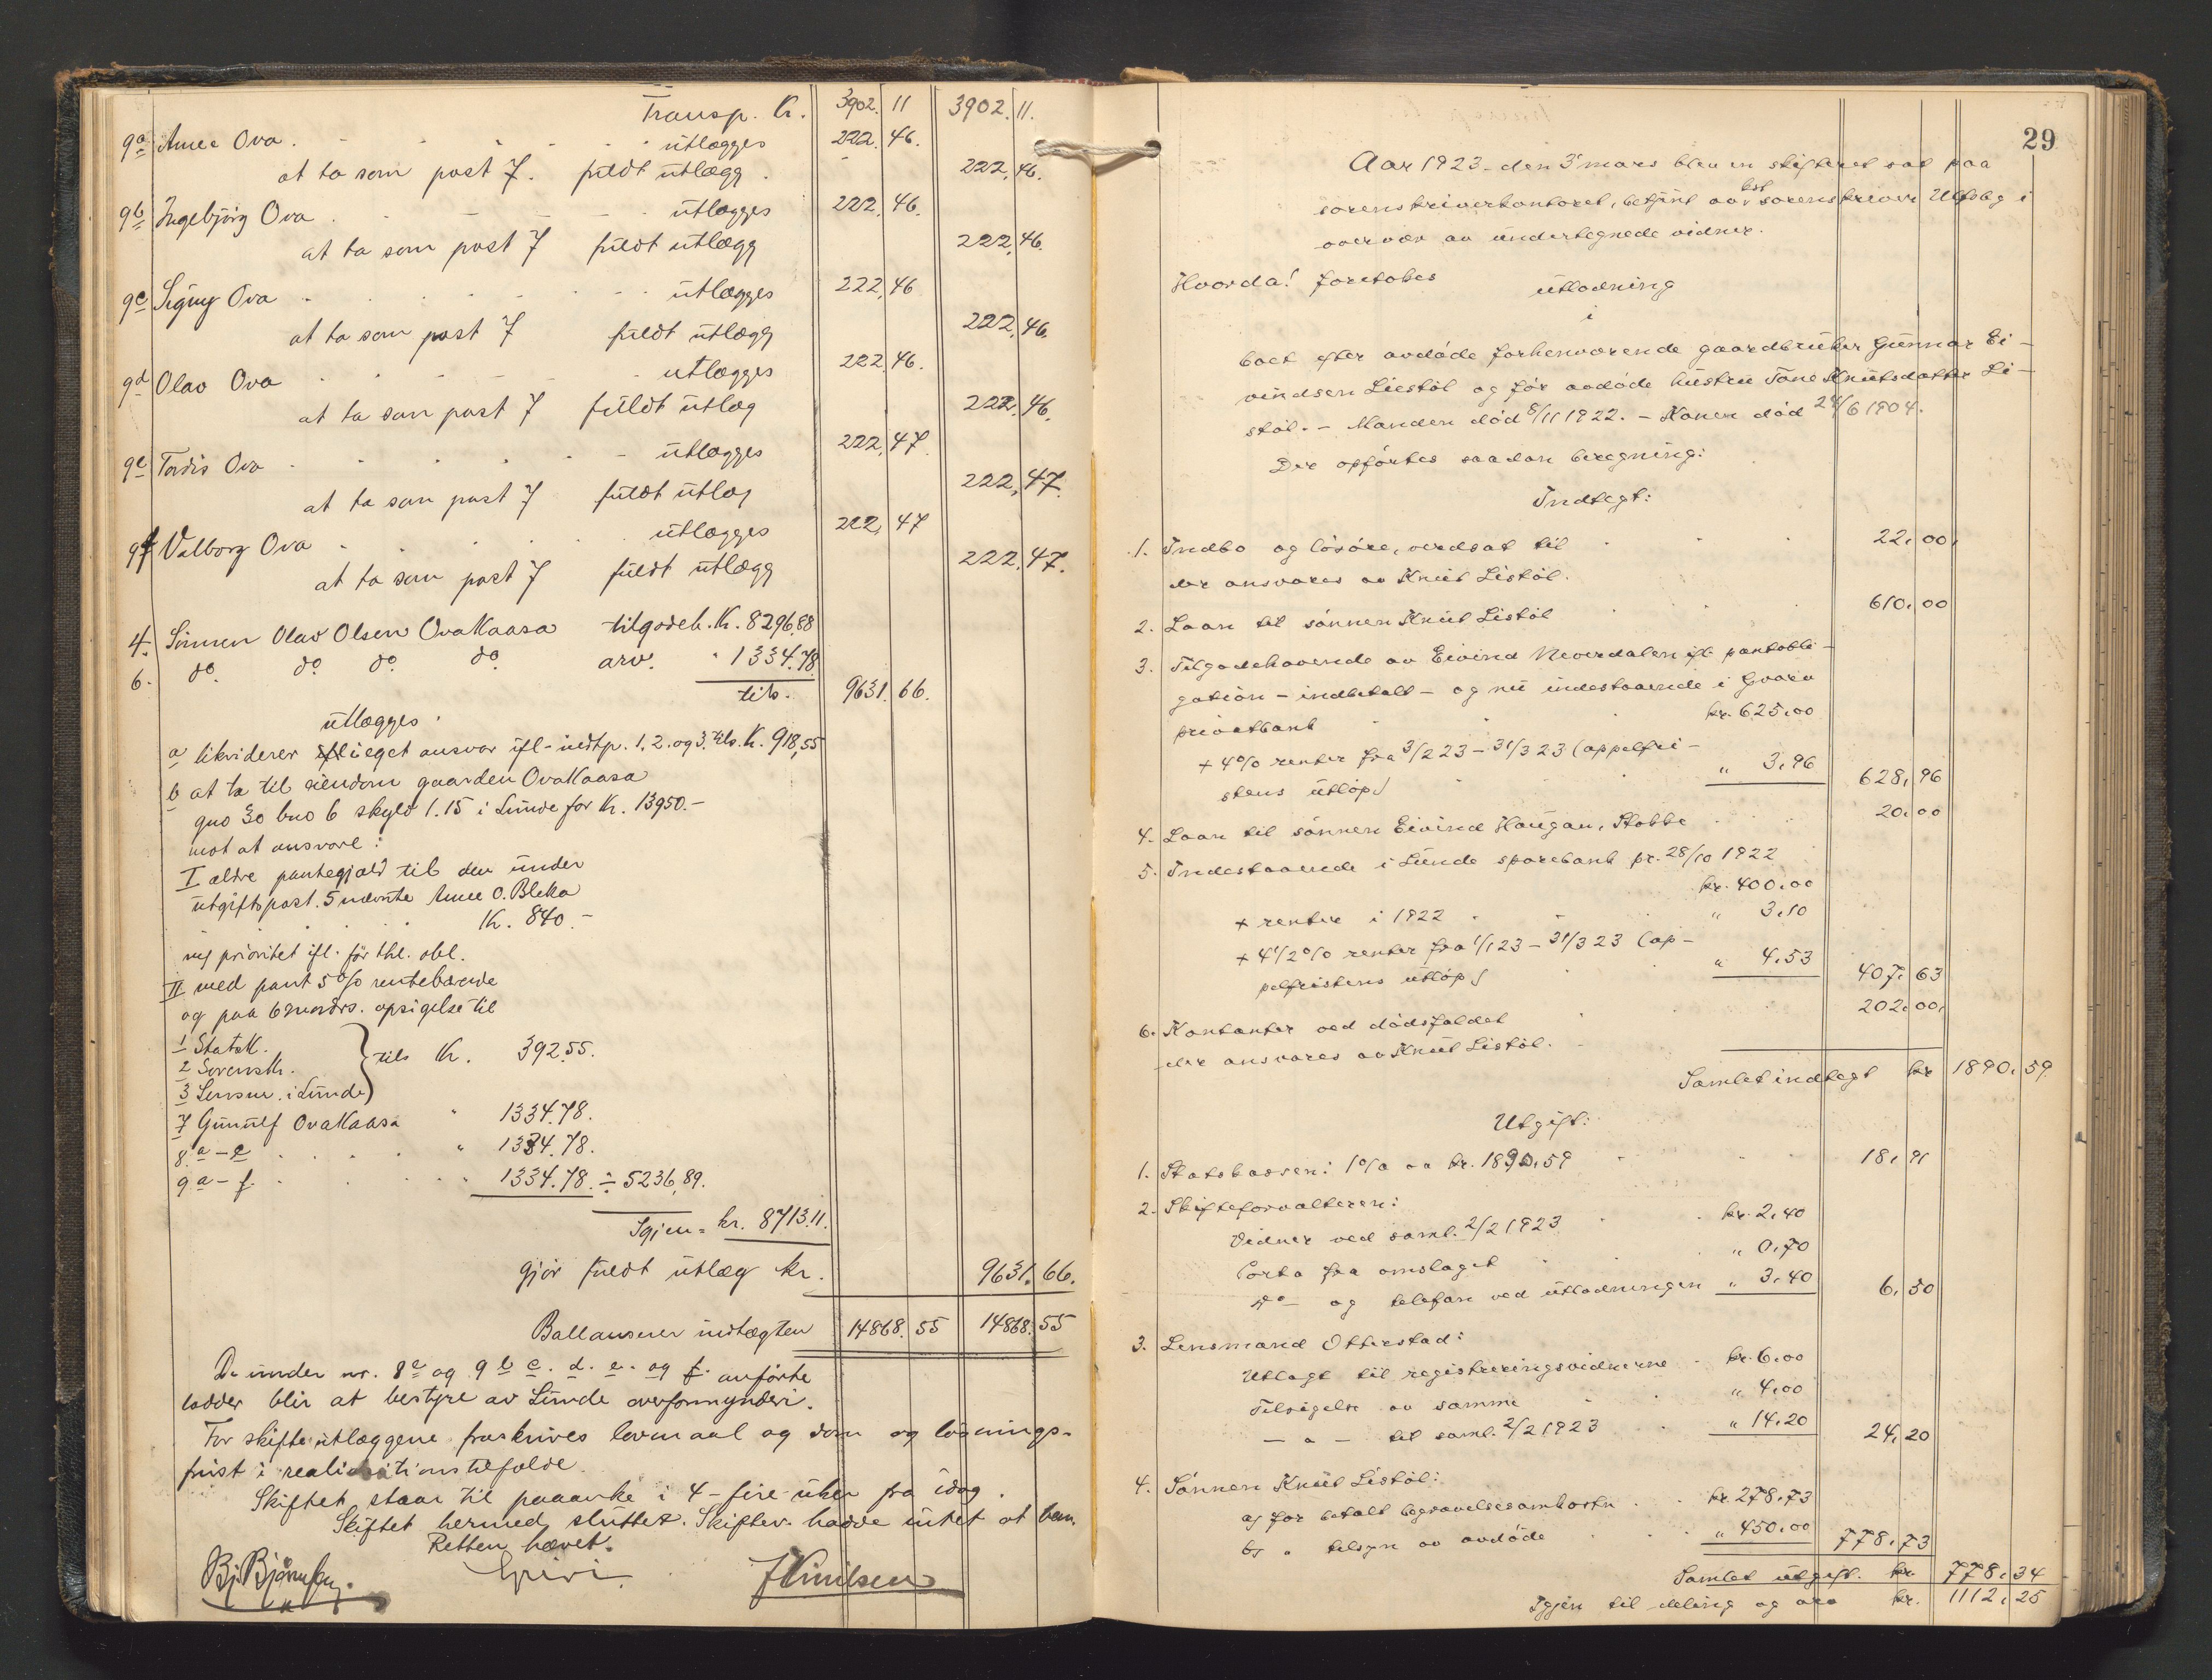 Transp. Kr. 3902. 11 3902. 11.
9a Anne Ova . . . . utlægges 222. 46.
at ta som post 7. fuldt utlægg . 222, 46.
9b Ingebjörg Ova . . . utlægges 222, 46.
at ta som post 7 fuldt utlægg 222, 46.
9c Signy Ova . . . . utlægges 222, 46
at ta som post 7 fuldt utlægg 222, 46.
9d Olav Ova . . . . utlægges 222, 46.
at ta som post 7 fuldt utlæg 222, 46.
9e Tordis Ova . . . . utlægges 222, 47.
at ta som post 7 fuldt utlæg 222, 47.
9f Valborg Ova . . . . utlægges 222, 47
at ta som post 7 fuldt utlægg 222. 47.
4. Sönnen Olav Olsen OvaKaasa tilgodeh. Kr. 8296,88
6. do. do. do. do arv. " 1334.78
tils. 9631. 66.
utlægges.
a likviderer i eget ansvar ifl. indtp. 1. 2. og 3. tils. K. 918,55
b at ta til eiendom gaarden OvaKaasa
gno 30 bno 6 skyld 1.15 i Lunde for Kr. 13950.-
mot at ansvare:
I ældre pantegjæld til den under
utgiftspost. 5 nævnte Anne O. Bleka
. . . . Kr. 840.-
prioritet ifl. för thl. obl.
II med pant 5 o/o rentebærende
og paa 6 mndrs. opsigelse til
1 Statsk.
2 Sorensk. } tils Kr. 392.55.
3 Lensm. i Lunde
7 Gunulf OvaKaasa " 1334.78.
8. a-e . . . . " 1334.78.
9 a-f. . . . . " 1334.78. ÷ 5236,89.
Igjen = kr. 8713.11.
gjör fuldt utlæg kr. 9631. 66.
Ballanserer indtægten 14868. 55 14868. 55
De under nr. 8e og 9 b c. d. e. og f. anförte
lodder blir at bestyre av Lunde overformynderi.
For skifteutlæggene fraskrives lovmaal og dom og lösnings-
frist i realisationstilfælde.
Skiftet staar til paaanke i 4-fire uker fra idag.
Skiftet hermed sluttet. Skiftev. hadde intet at bem.
Retten hævet.
Bj. Björnsen. J Knutsen
29
Aar 1923 - den 3' mars blev en skifteret sat paa
sorenskriverkontoret, betjent av kst sorenskriver Ulfsby i
overvær av undertegnede vidner.
Hvorda! foretokes
utlodning
i
boet efter avdöde forhenværende gaardbruker Gunnar Ei-
vindsen Liestöl og för avdöde hustru Tone Knutsdatter Li-
stöl. - Manden död 8/11 1922. - Konen död 24/6 1904.
Der opförtes saadan beregning:
Indtegt:
1. Indbo og lösöre, verdsat til . . . 22, 00,
der ansvares av Knut Listöl.
2. Laan til sönnen Knut Listöl . . . 610, 00
3. Tilgodehavende av Eivind Neverdalen ifl. pantobli-
gation - indbetalt - og nu indestaaende i Gvarv
privatbank . . kr. 625,00
+ 4% renter fra 3/2 23 - 31/3 23 (appelfri-
stens utlöp) . . " 3,96 628, 96
4. Laan til sönnen Eivind Haugan, Stokke . . . 20, 00
5. Indestaaende i Lunde sparebank pr. 28/10 1922
kr. 400,00
+ renter i 1922 . . " 3,10
+ 4 1/2 % renter fra 1/1 23 - 31/3 23 (ap-
pelfristens utlöp) . . " 4,53 407, 63
6. Kontanter ved dödsfaldet . . . 202, 00,
der ansvares av Knut Listöl.
Samlet indtegt kr 1890, 59
Utgift:
1. Statskassen: 1% av kr. 1890,59 . . . 18, 91
2. Skifteforvalteren:
Vidner ved saml. 2/2 1923 . . kr. 2,40
Porto fra omslaget . . " 0,70
do - og telefon ved utlodningen " 3,40 6, 50
3. Lensmand Otterstad:
Utlagt til registreringsvidnerne . kr. 6,00
Tilsigelse av samme . . " 4,00
- " - til saml. 2/2 1923 . . " 14,20 24, 20
4. Sönnen Knut Listöl:
a) for betalt begravelsesomkostn . . kr. 278,73
b) " tilsyn av avdöde . . . " 450,00 778, 73
Samlet utgift. kr. 778, 34
Igjen til deling og arv kr. 1112, 25